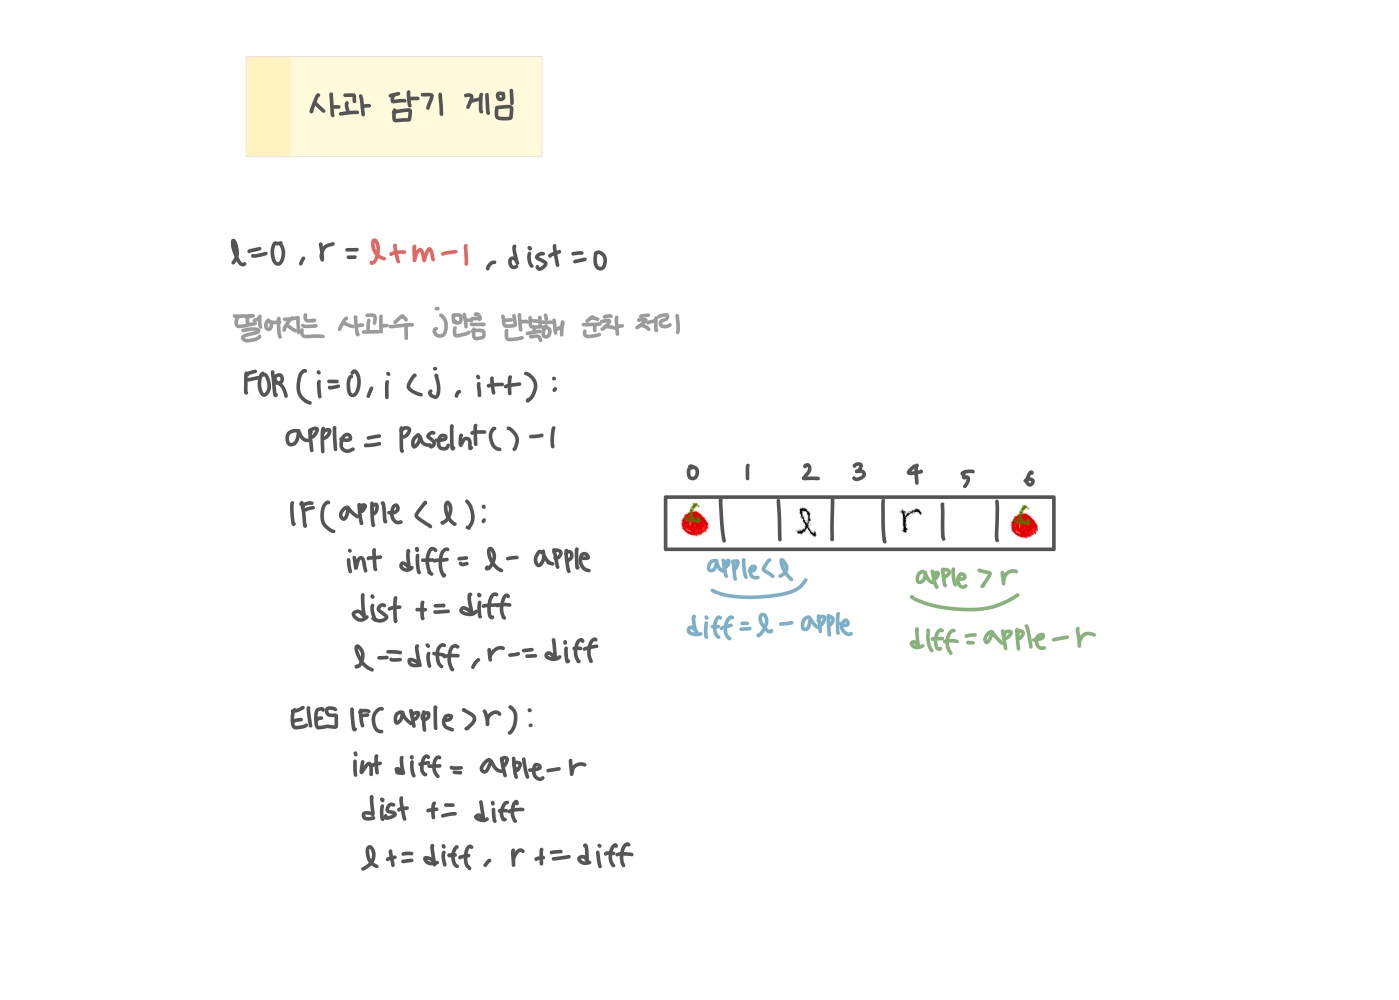 사과 담기 게임
l=0, r = l+m-1, dist=0
떨어지는 사과수 j만큼 반복해 순차 처리
FOR(i=0, i<j, i++):
apple = PaseInt()-1
IF(apple < l):
int diff = l - apple
dist += diff
l -= diff, r -= diff
ElES IF(apple > r):
int diff = apple - r
dist += diff
l += diff, r += diff
0 1 2 3 4 5 6
l r
apple<l
diff = l - apple
apple > r
diff = apple - r